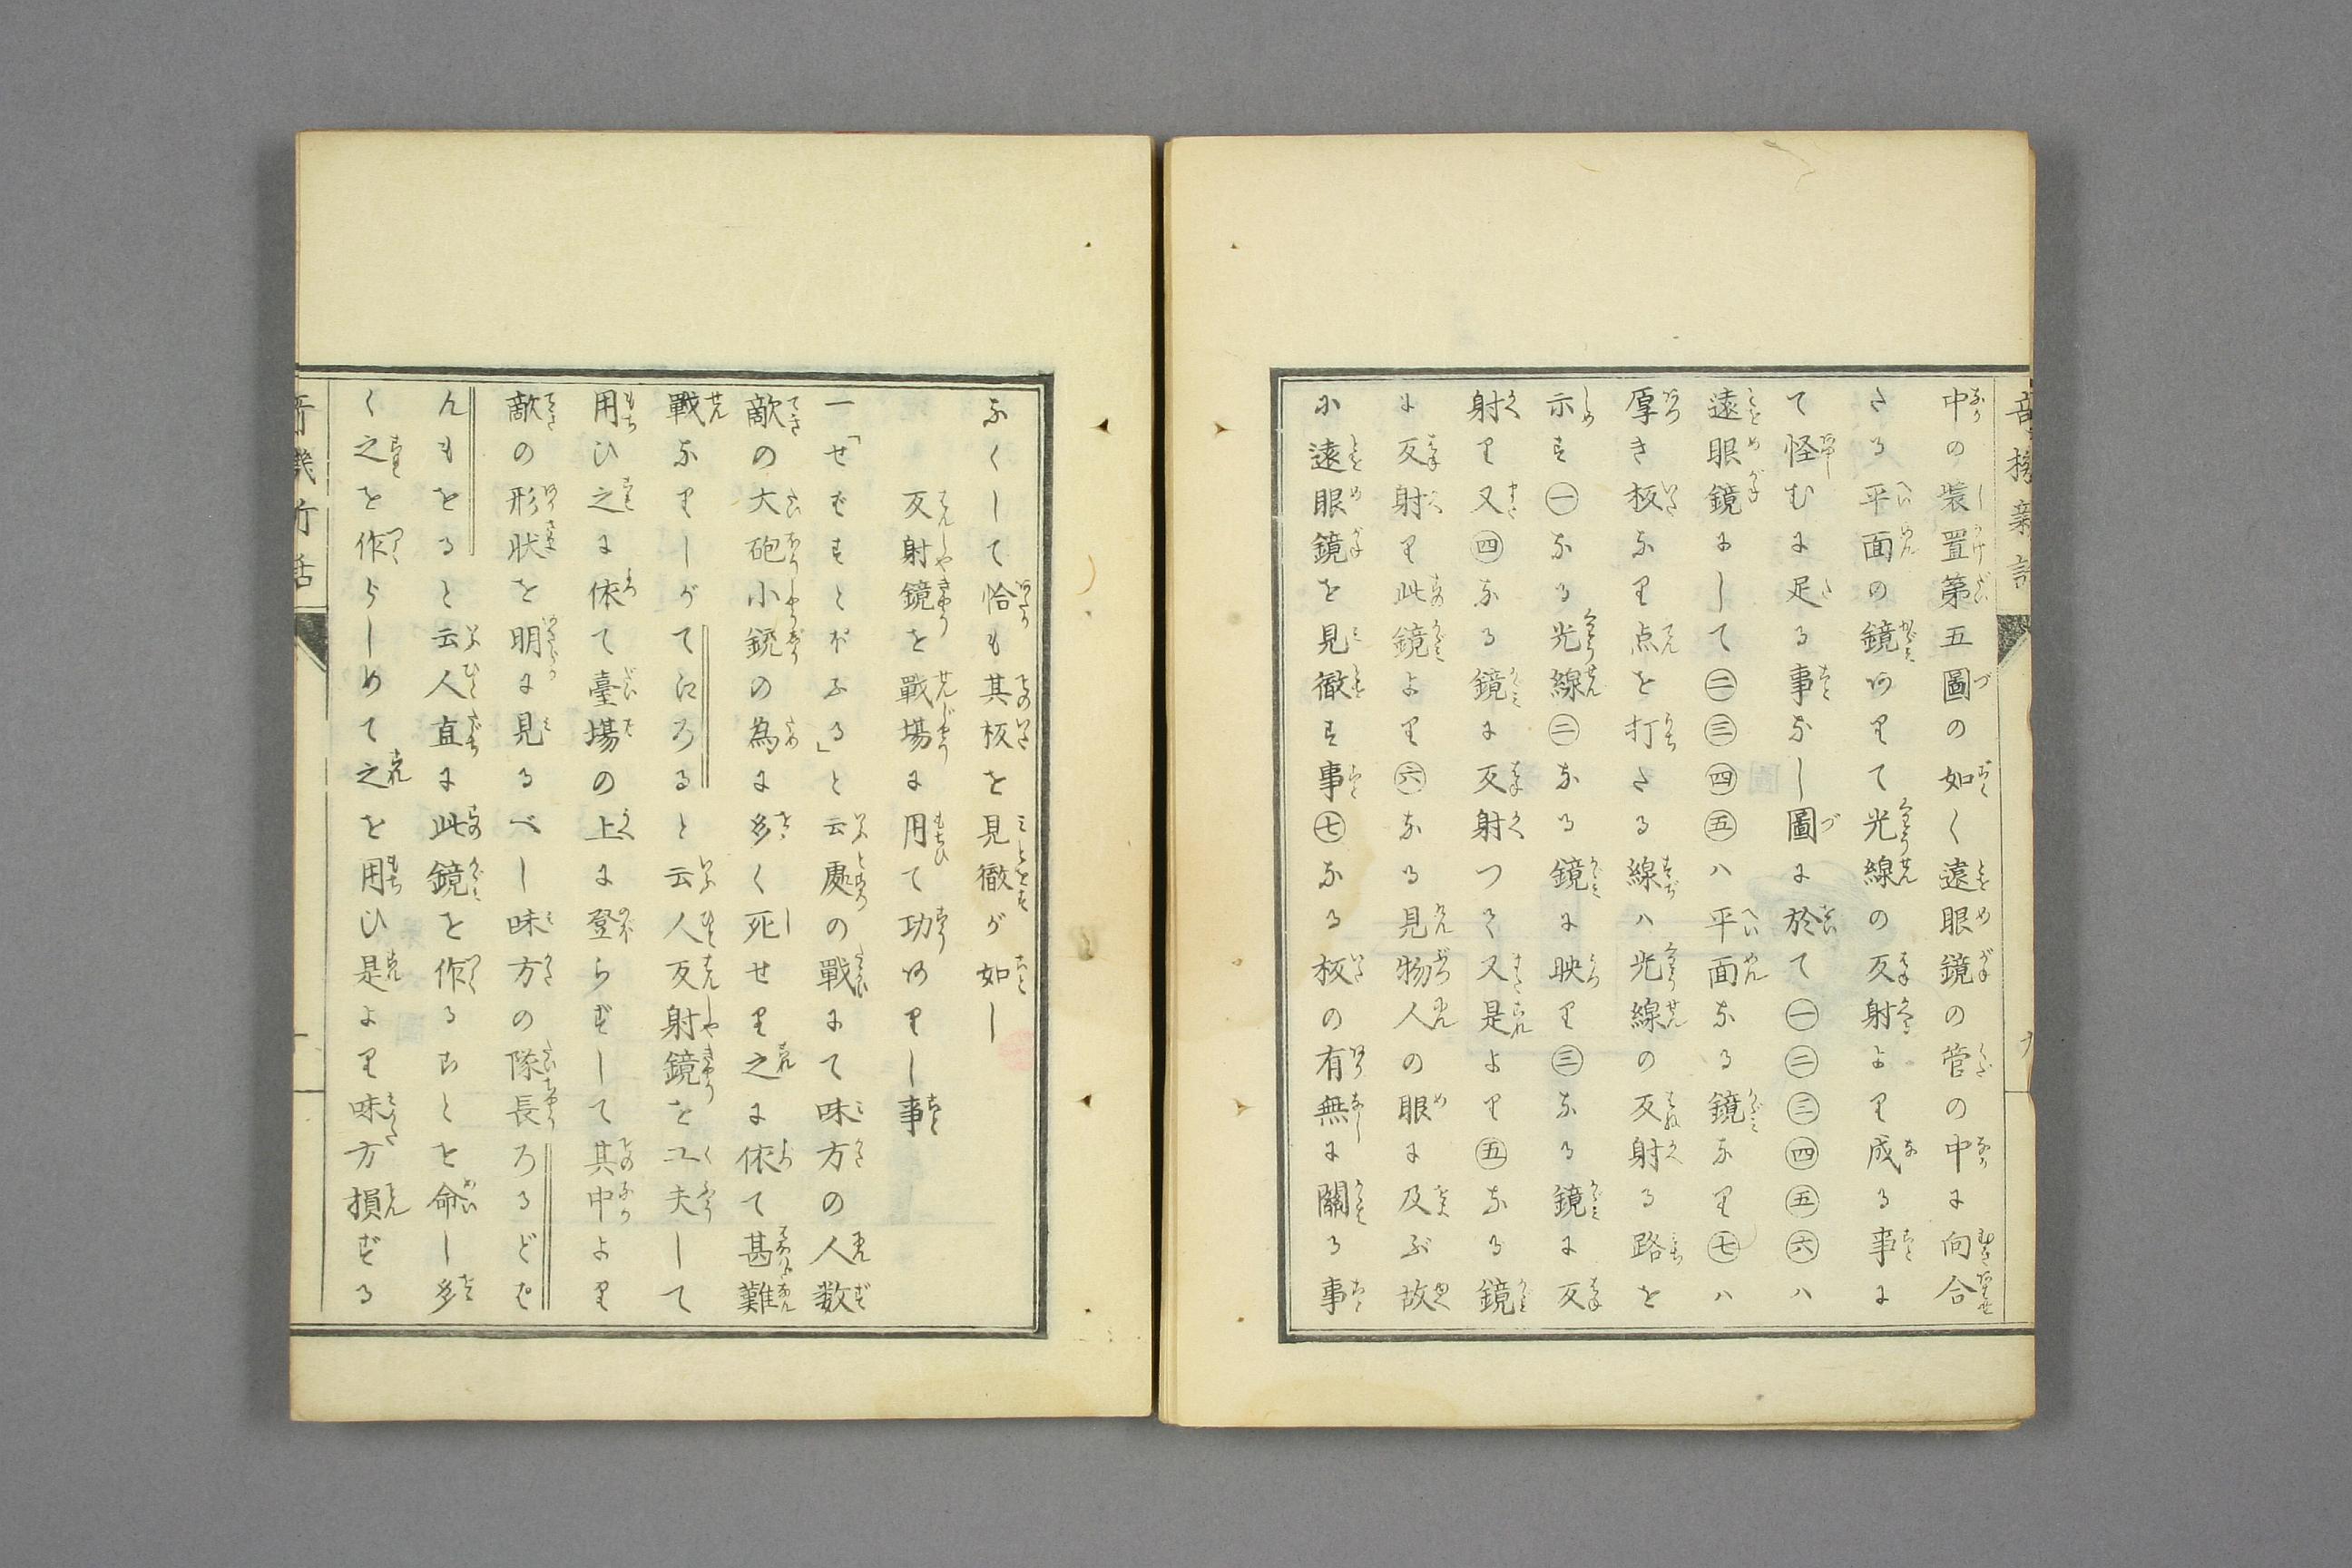 中の装置第五圖の如く遠眼鏡の管の中に向合
さる平面の鏡ありて光線の反射より成る事に
て怪むに足る事なし圖に於て㊀㊁㊂㊃㊄㊅ハ
遠眼鏡にして㊁㊂㊃㊄ハ平面なる鏡なり㊆ハ
厚き板なり点を打さる線ハ光線の反射る路を
示す㊀なる光線㊁なる鏡に映り㊂なる鏡に反
射り又㊃なる鏡に反射つて又是より㊄なる鏡
に反射り此鏡より㊅なる見物人の眼に及ぶ故
に遠眼鏡を見徹す事㊆なる板の有無に關る事
なくして恰も其板を見徹が如し
反射鏡を戰場に用て功ありし事
一「せばすとぽふる」と云處の戰にて味方の人数
敵の大砲小銃の為に多く死せり之に依て甚難
戰なりしがてにろると云人反射鏡を工夫して
用ひ之に依て臺場の上に登らずして其中より
敵の形状を明に見るべし味方の隊長ろるどむ
んもをると云人直に此鏡を作ることを命し多
く之を作らしめて之を用ひ是より味方損ずる